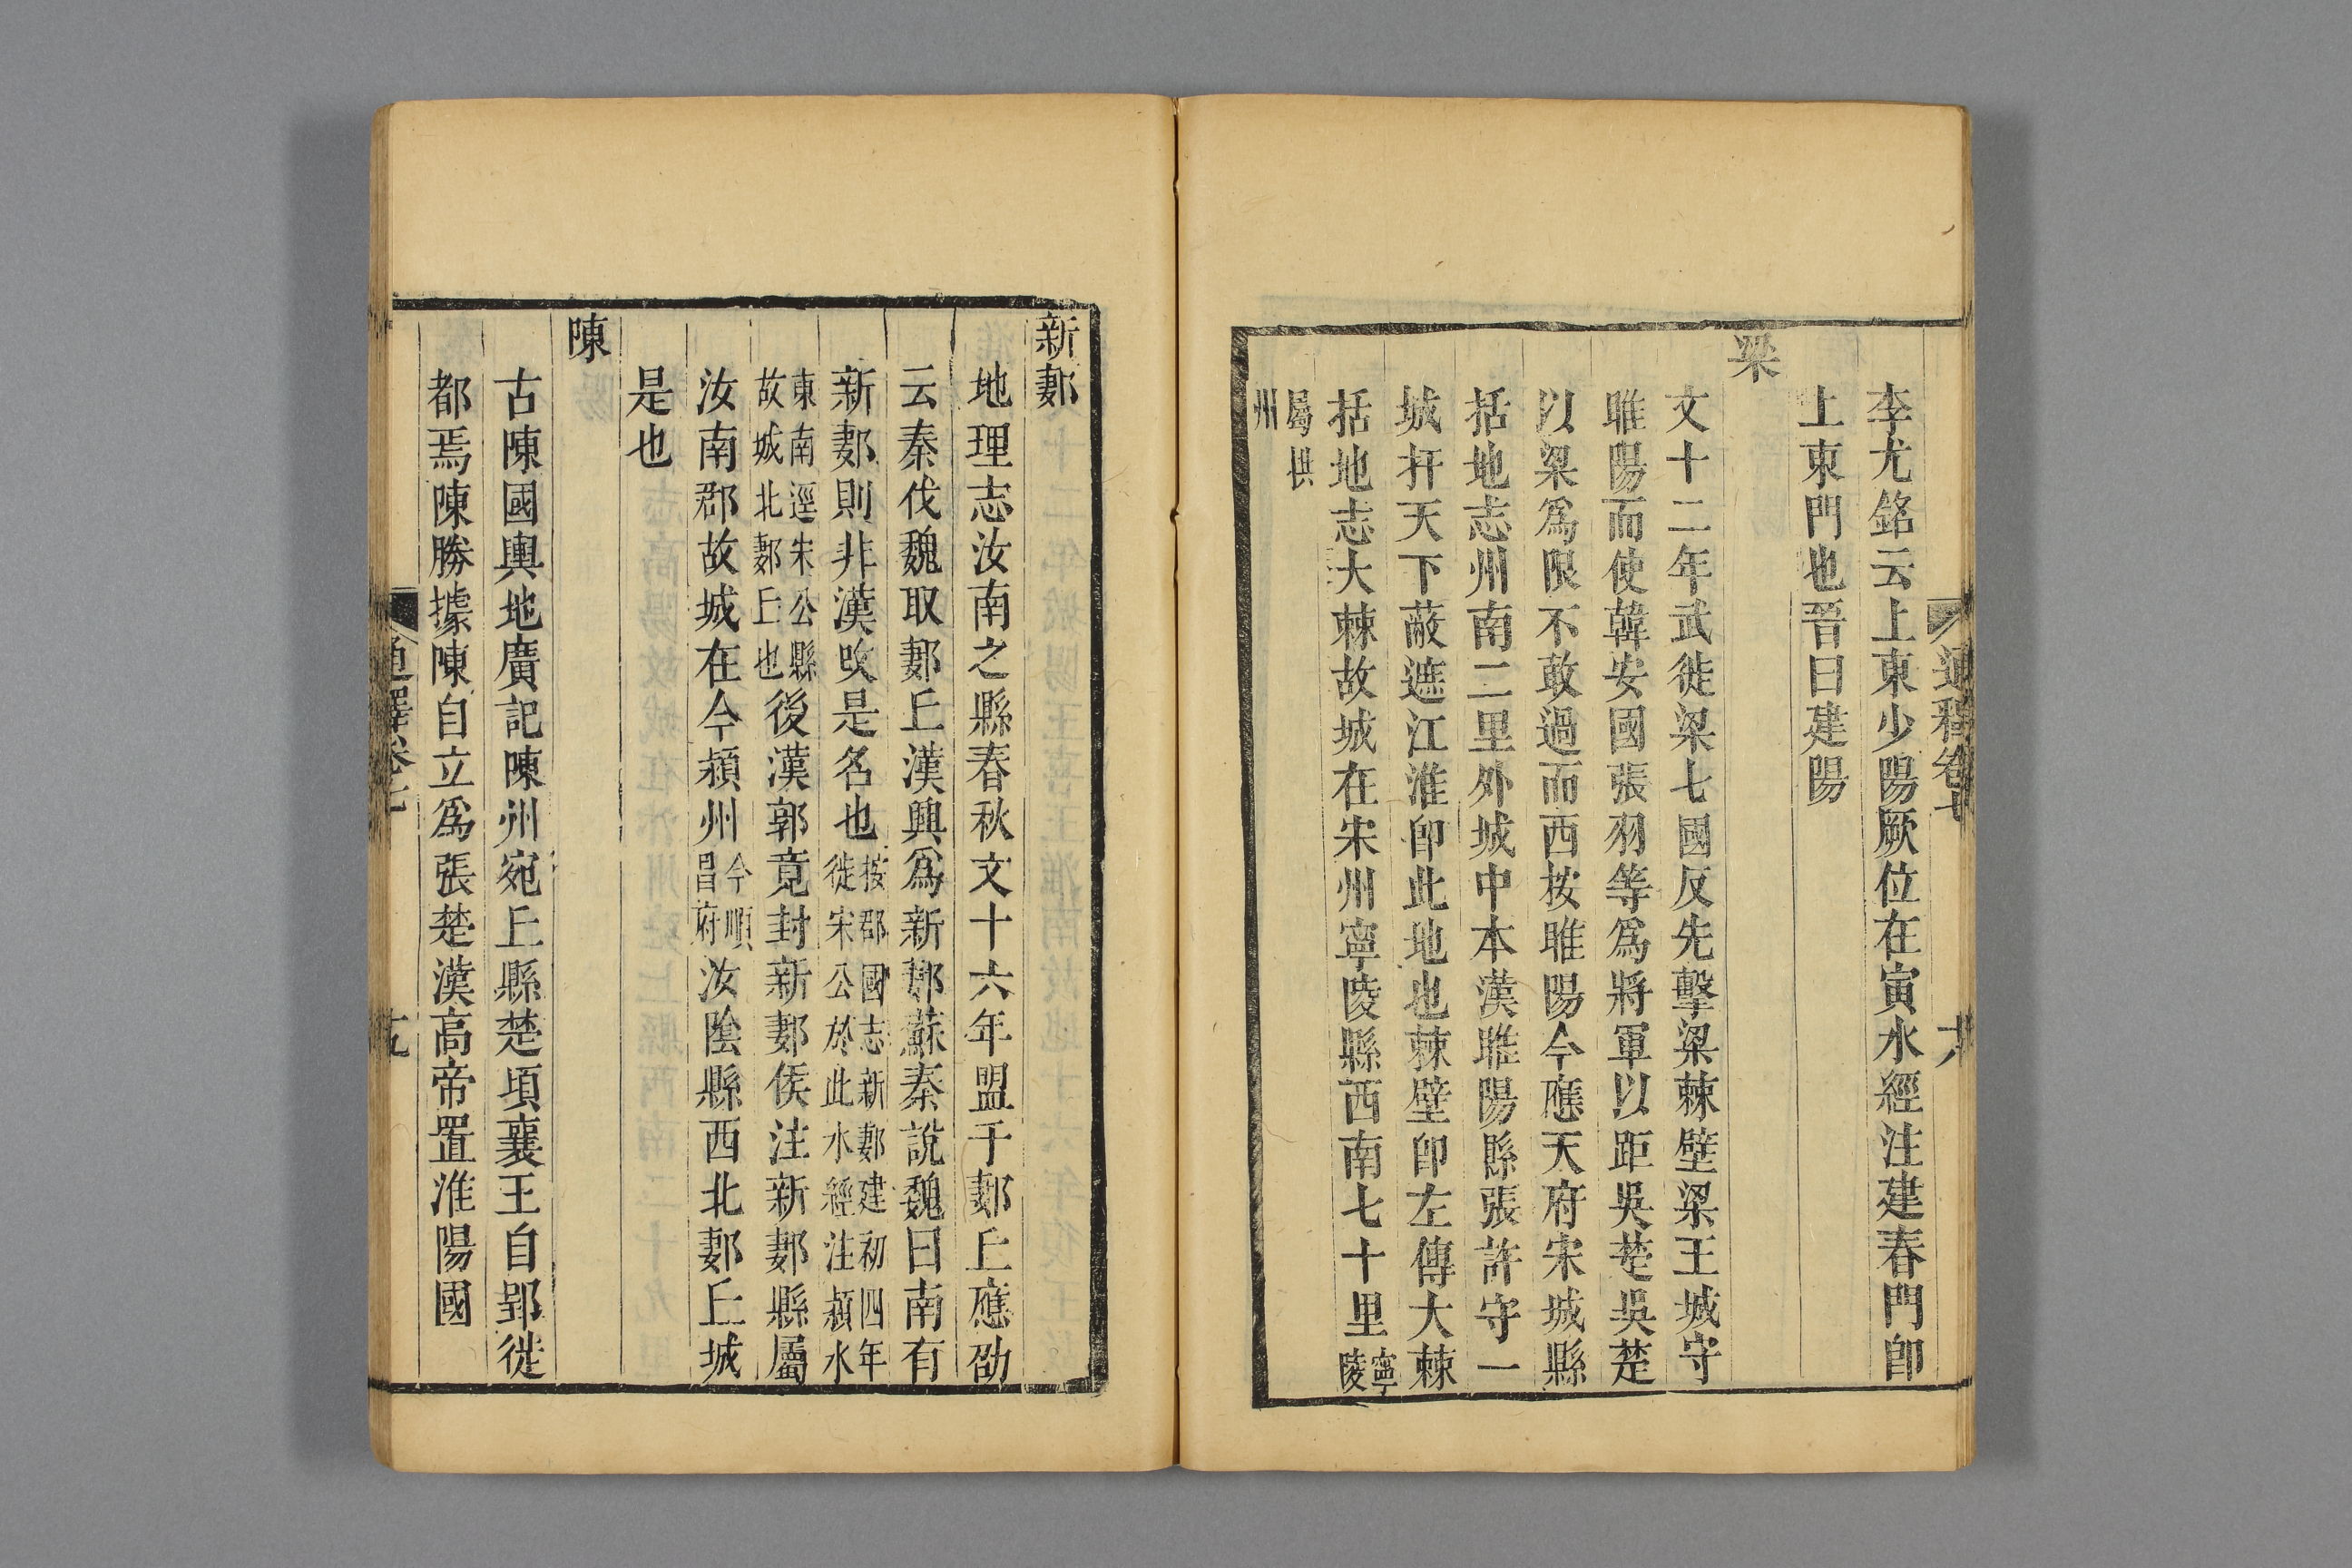 李尤銘云上東少陽厥位在寅水經注建春門卽
上東門也晉曰建陽
梁
文十二年武徙梁七國反先擊梁棘壁梁王城守
睢陽而使韓安國張羽等爲將軍以距吳楚吳楚
以梁爲限不敢過而西按睢陽今應天府宋城縣
括地志州南二里外城中本漢睢陽縣張許守一
城扞天下蔽遮江淮卽此地也棘壁卽左傳大棘
括地志大棘故城在宋州寧陵縣西南七十里寧陵
屬拱州
新郪
地理志汝南之縣春秋文十六年盟于郪丘應劭
云秦伐魏取郪丘漢興爲新郪蘇秦說魏曰南有
新郪則非漢攺是名也按郡國志新郪建初四年徙宋公於此水經注潁水
東南逕朱公縣故城北郪丘也後漢郭竟封新郪侯注新郪縣屬
汝南郡故城在今潁州今順昌府汝陰縣西北郪丘城
是也
陳
古陳國輿地廣記陳州宛丘縣楚頃襄王自郢徙
都焉陳勝據陳自立爲張楚漢高帝置淮陽國